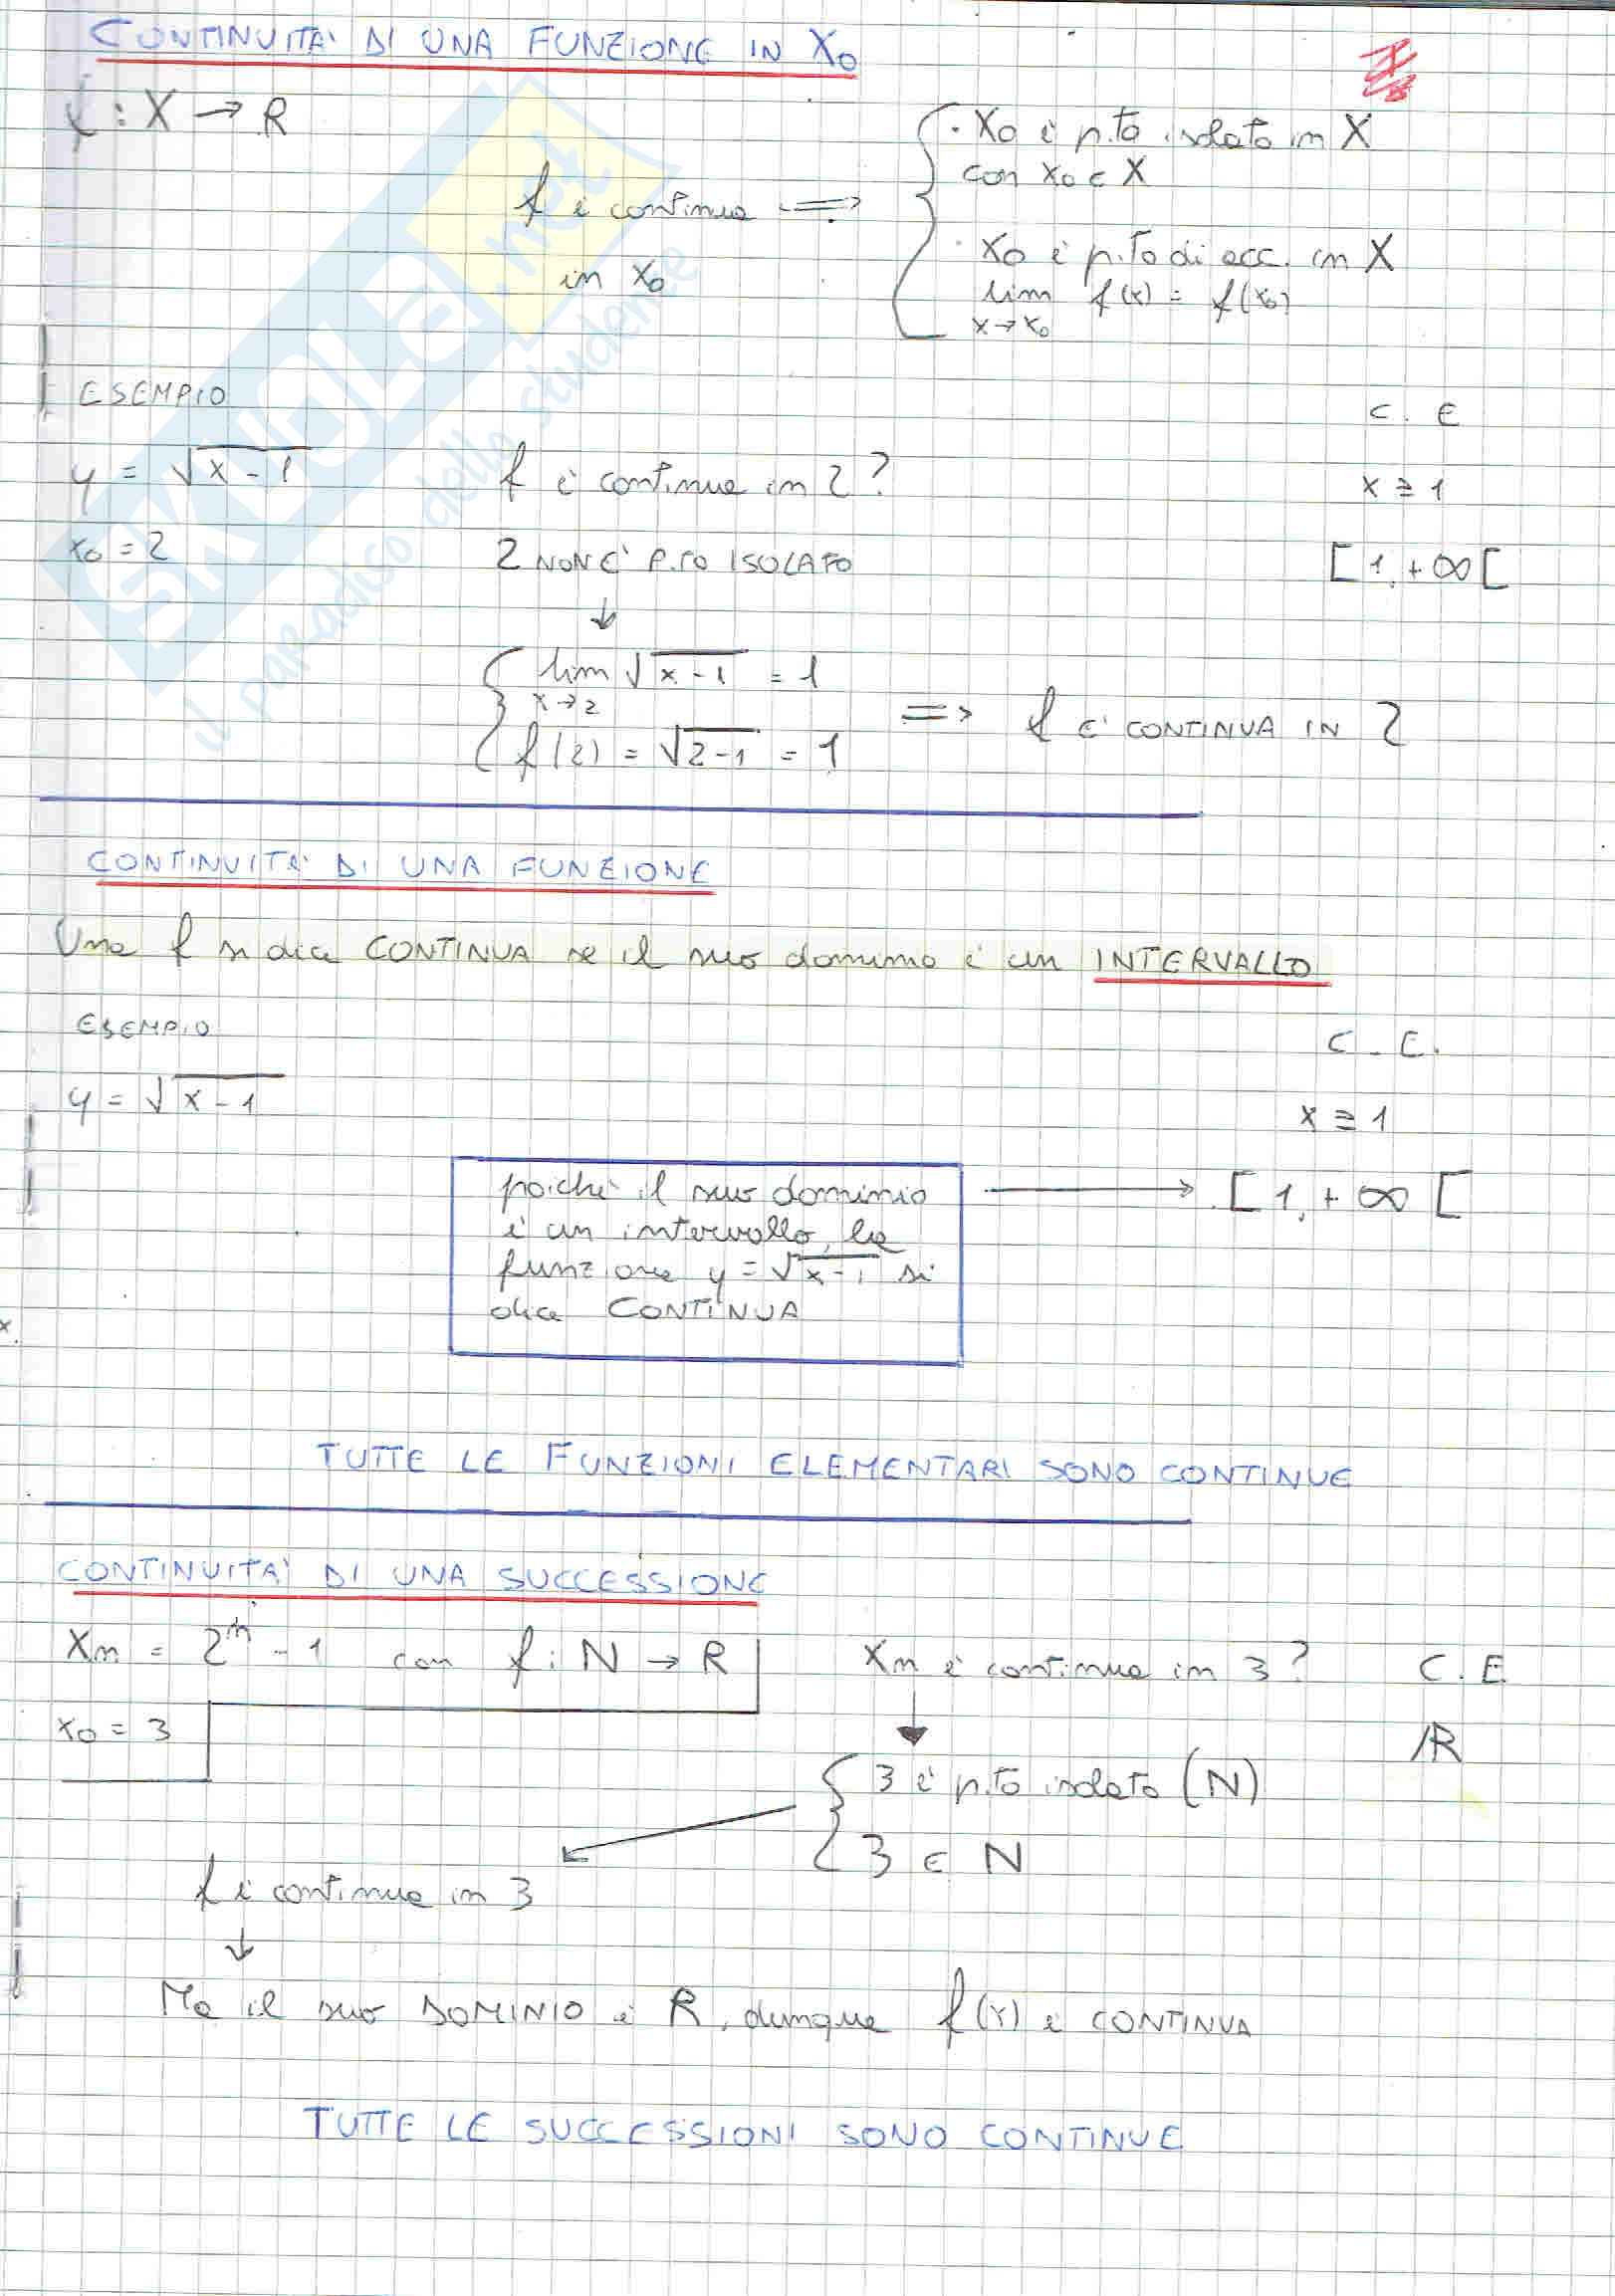 CONTINUITA' DI UNA FUNZIONE IN X₀
f : X → R
f è continua ⟹
in x₀
· X₀ è p.to isolato in X
con x₀ ∈ X
· X₀ è p.to di acc. in X
lim f(x) = f(x₀)
x→x₀
ESEMPIO
C. E
y = √x-1
f è continua in 2?
x ≥ 1
x₀ = 2
2 NON E' P.TO ISOLATO
[1, +∞[
↓
lim √x-1 = 1
x→2
f(2) = √2-1 = 1
=> f E' CONTINUA IN 2
CONTINUITA' DI UNA FUNZIONE
Una f si dice CONTINUA se il suo dominio è un INTERVALLO
ESEMPIO
C. E.
y = √x-1
x ≥ 1
poiché il suo dominio
è un intervallo, la
funzione y = √x-1 si
dice CONTINUA
→ [1, +∞[
TUTTE LE FUNZIONI ELEMENTARI SONO CONTINUE
CONTINUITA' DI UNA SUCCESSIONE
Xn = 2ⁿ - 1 con f : N → R
Xn è continua in 3?
C. E
x₀ = 3
IR
3 è p.to isolato (N)
3 ∈ N
f è continua in 3
↓
Ma il suo DOMINIO è R, dunque f(x) è CONTINUA
TUTTE LE SUCCESSIONI SONO CONTINUE
SKUOLA.net
il paradiso dello studente